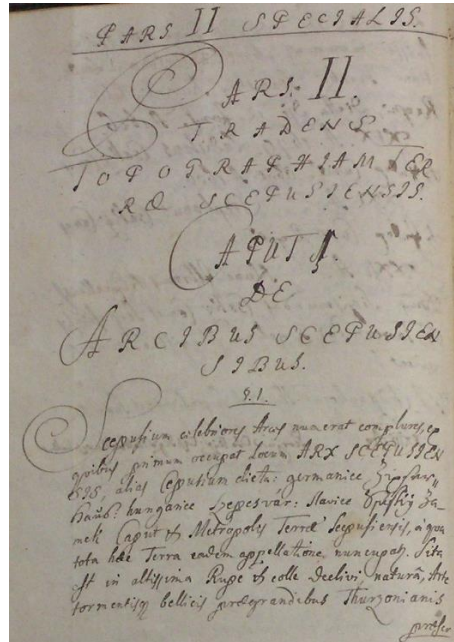 PARS II SPECIALIS.
PARS. II.
TRADENS
TOPOGRAPHIAM TER
RÆ SCEPUSIENSIS.
CAPUT I.
DE
ARCIBUS SCEPUSIEN
SIBUS.
§. 1.
Scepusium celebriores Arces numerat complures, ex
quibus primum occupat locum ARX SCEPUSIEN
SIS, alias Cepusium dicta: germanice Zipser„
Hauß: hungarice Szepesvár: slavice Spissky Za-
mek Caput & Metropolis Terræ Scepusiensis, a qua
tota hæc Terra eadem appellatione nuncupatʒ. Sita
est in altissima Rupe & colle declivi, naturâ, Arte
tormentisqʒ bellicis prægrandibus Thurzonianis